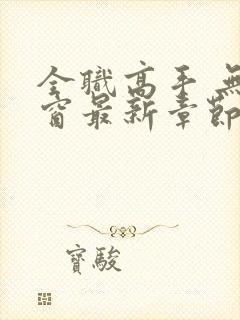 全職高手 無
窗最新章節
寶駿